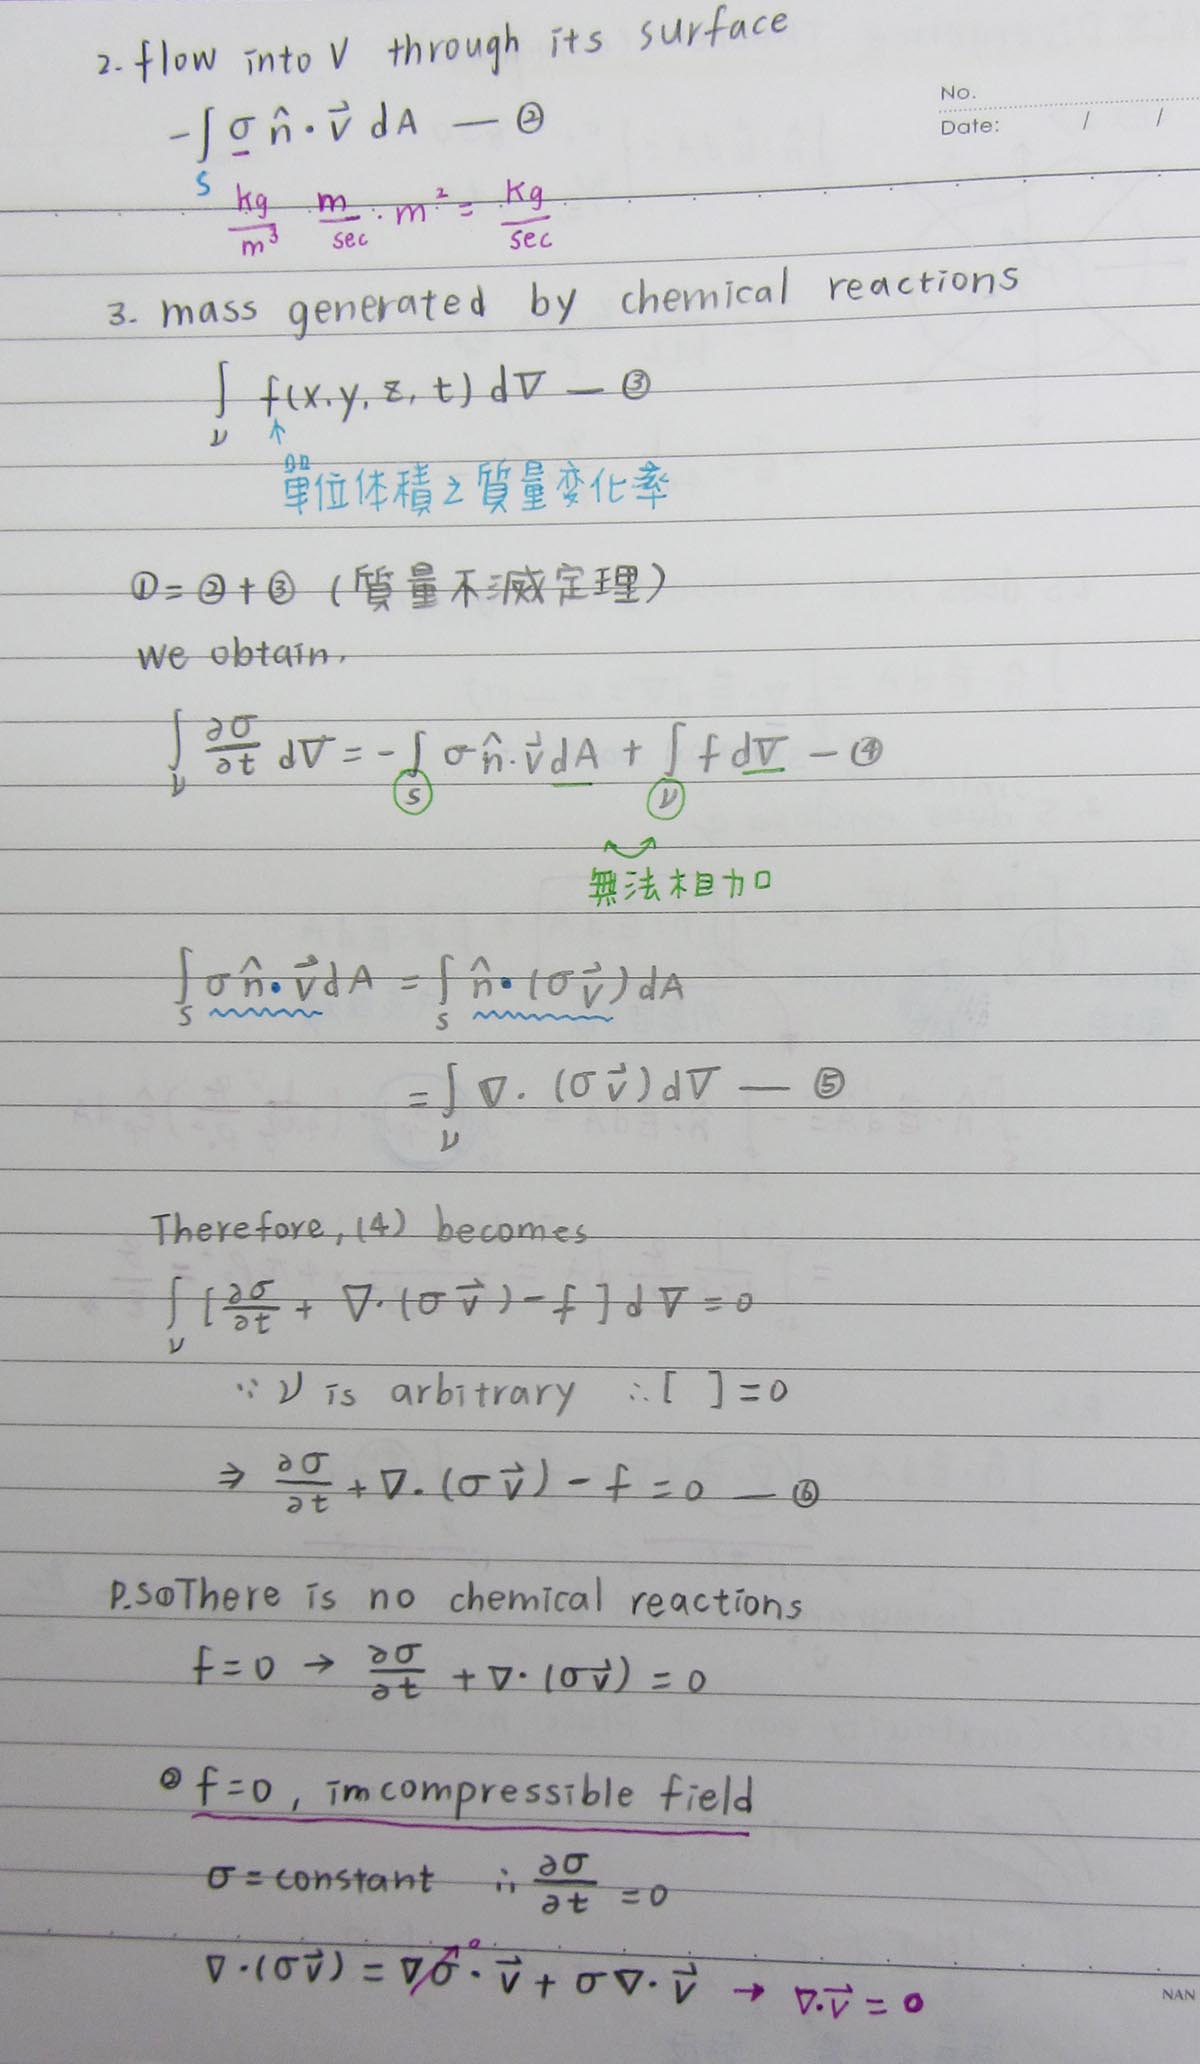 2. flow into V through its surface
No.
Date: / /
-∫_S σ n̂ · v⃗ dA — ②
kg/m³ m/sec · m² = kg/sec
3. mass generated by chemical reactions
∫_V f(x, y, z, t) dV — ③
↑
單位体積之質量变化率
① = ② + ③ (質量不滅定理)
We obtain,
∫_V ∂σ/∂t dV = -∫_S σ n̂ · v⃗ dA + ∫_V f dV — ④
無法相加
∫_S σ n̂ · v⃗ dA = ∫_S n̂ · (σ v⃗) dA
= ∫_V ∇ · (σ v⃗) dV — ⑤
Therefore, (4) becomes
∫_V [∂σ/∂t + ∇ · (σ v⃗) - f] dV = 0
∵ V is arbitrary ∴ [ ] = 0
⇒ ∂σ/∂t + ∇ · (σ v⃗) - f = 0 — ⑥
P.S ① There is no chemical reactions
f = 0 → ∂σ/∂t + ∇ · (σ v⃗) = 0
② f = 0, imcompressible field
σ = constant ∴ ∂σ/∂t = 0
∇ · (σ v⃗) = ∇σ↗0 · v⃗ + σ ∇ · v⃗ → ∇ · v⃗ = 0
NAN